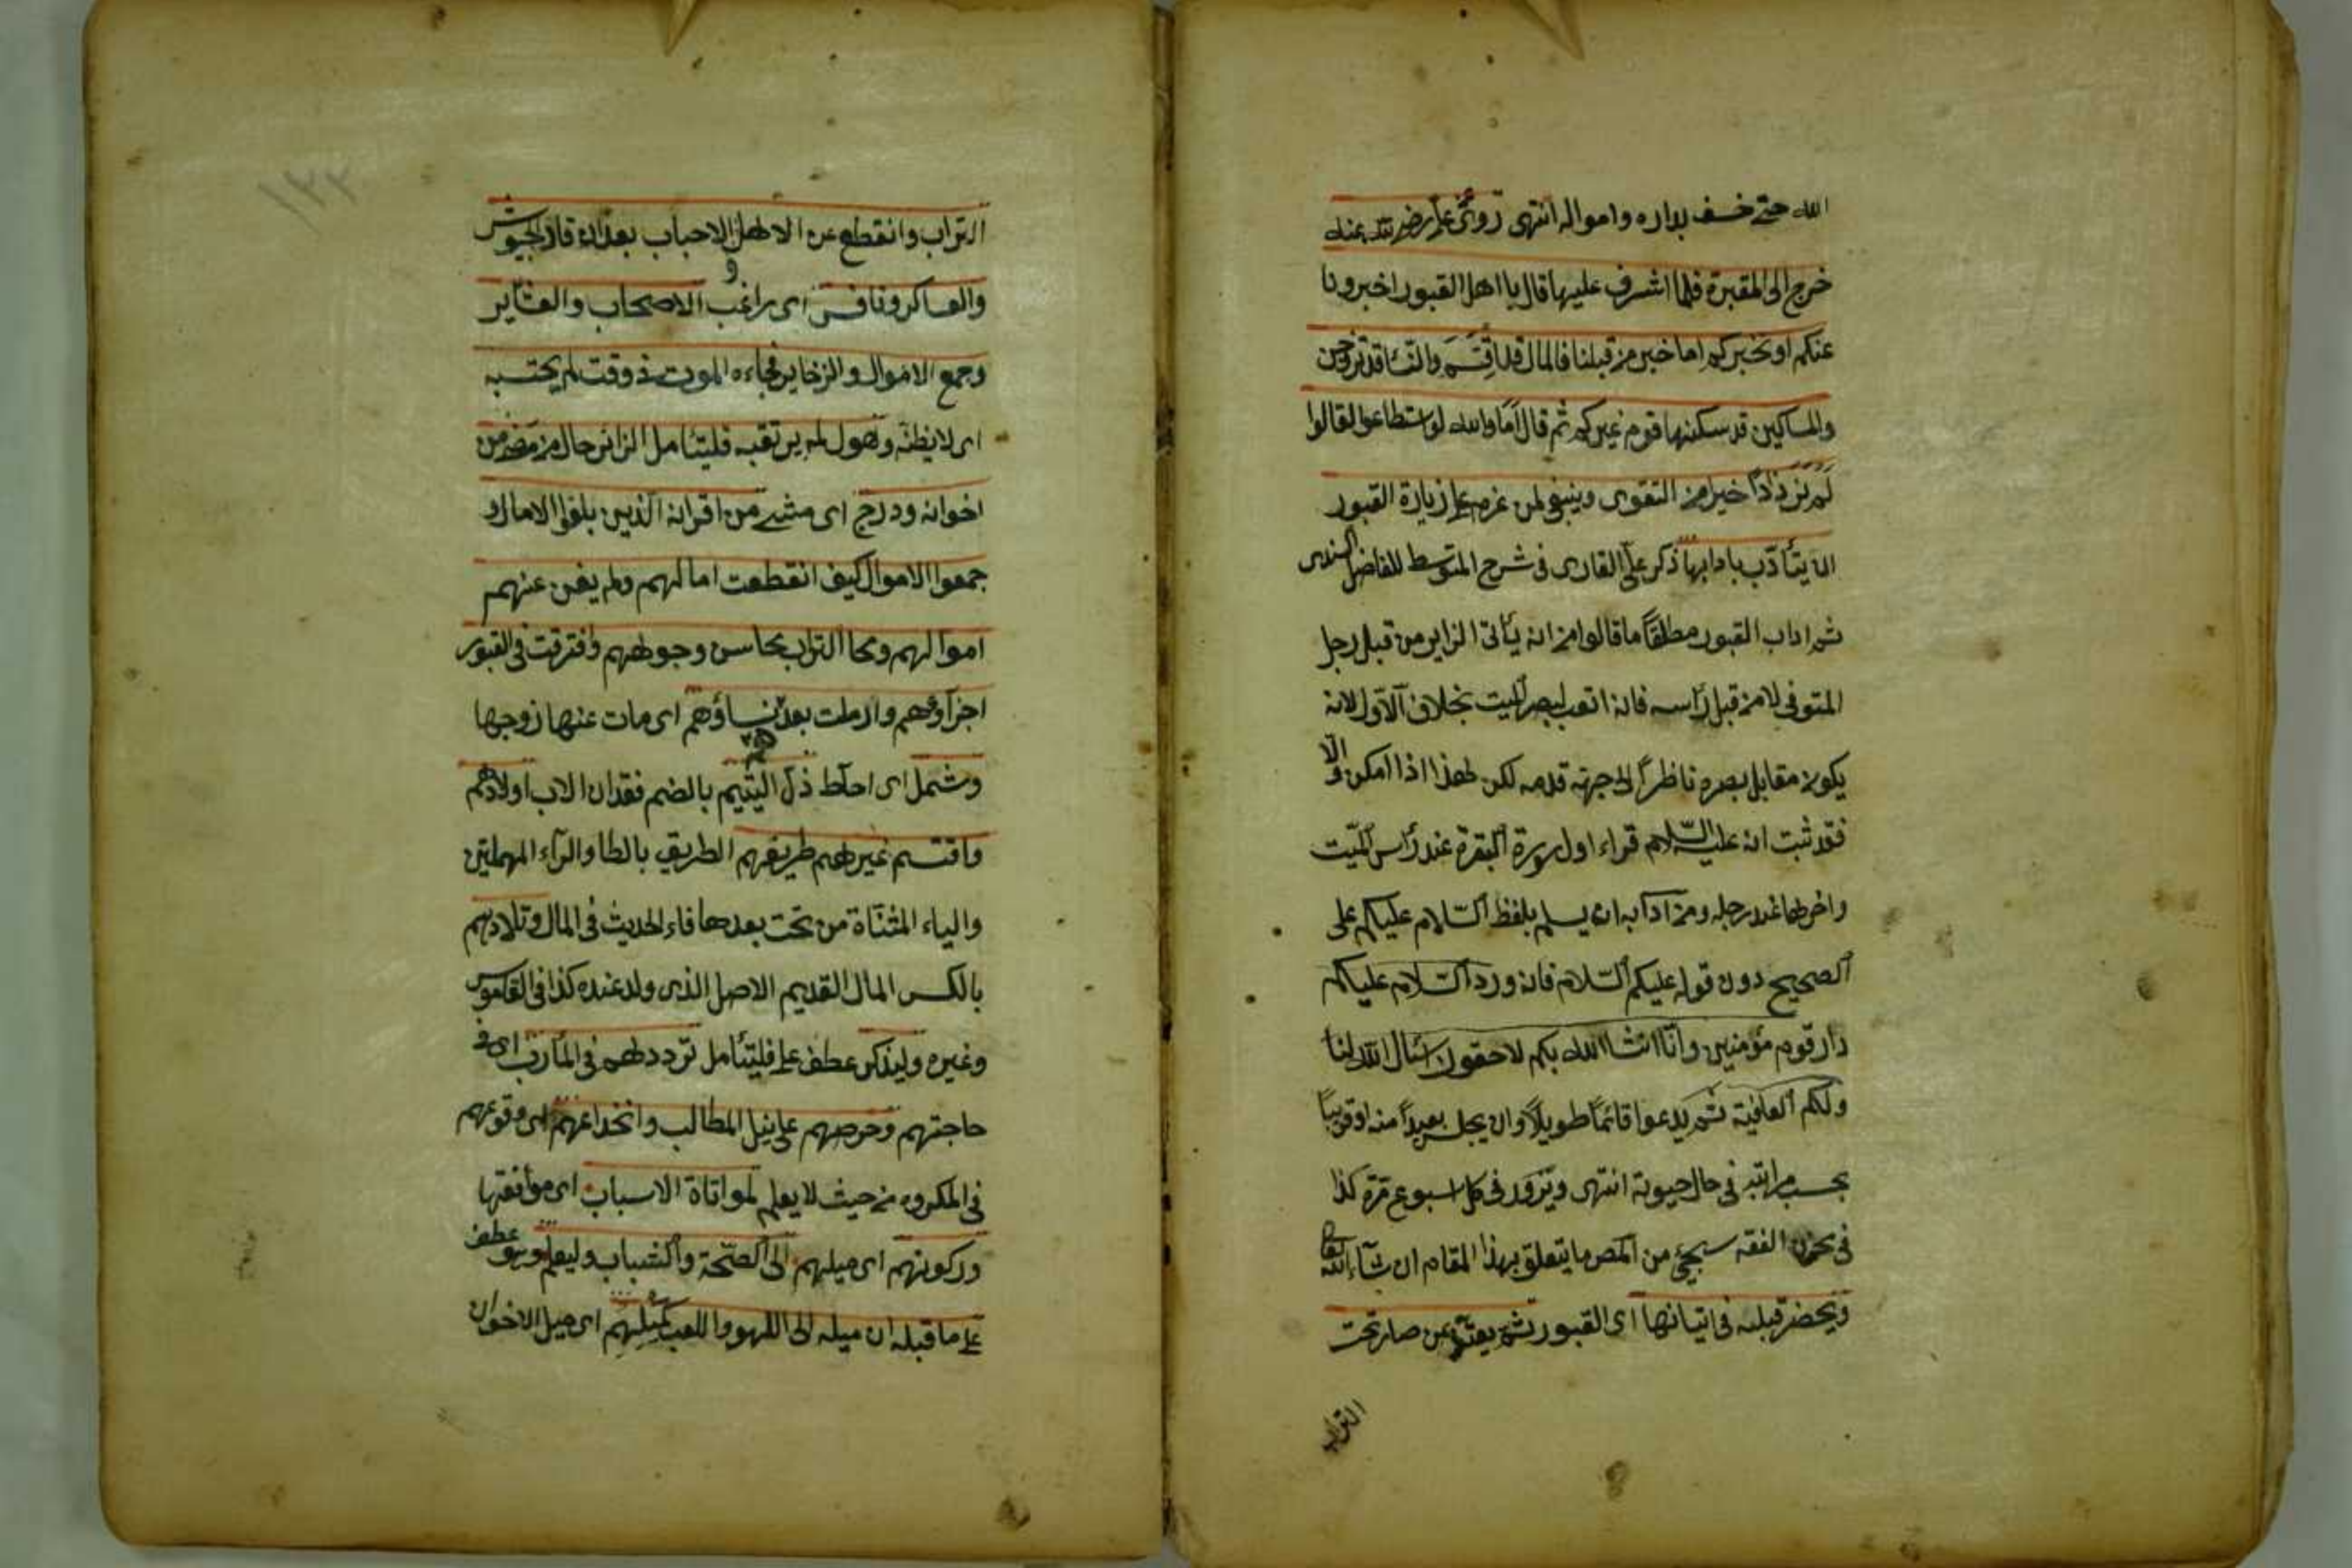 الله حتى خسف بداره وامواله انتهى روى عن على رضى الله عنه
خرج الى المقبرة فلما اشرف عليها قال يا اهل القبور اخبرونا
عنكم او نخبركم اما خبر من قبلنا فالمال قد اقتسم والنساء قد تزوجن
والمساكين قد سكنها قوم غيركم ثم قال اما والله لو استطاعوا لقالوا
لم نر زادا خيرا من التقوى وينبغى لمن عزم على زيارة القبور
ان يتأدب بادابها ذكر على القارى فى شرح المتوسط للفاضل السندى
ثم اداب القبور مطلقاً ما قالوا من انه يأتى الزاير من قبل رجل
المتوفى لا من قبل رأسه فانه اتعب لبصر الميت بخلاف الاول لانه
يكون مقابل بصره ناظراً الى جهة قدمه لكن هذا اذا امكن والا
فقد ثبت انه عليه السلام قراء اول سورة البقرة عند رأس الميت
واخرها عند رجله ومن ادابه ان يسلم بلفظ السلام عليكم على
الصحيح دون قوله عليكم السلام فانه ورد السلام عليكم
دار قوم مؤمنين وانا انشا الله بكم لاحقون اسئال الله لنا
ولكم العافية ثم يدعوا قائماً طويلاً وان يجلس بعيداً منه او قريباً
بحسب مراتبه فى حال حيوته انتهى ويزور فى كل اسبوع مرة كذا
فى الفقه سيجئ من المص ما يتعلق بهذا المقام ان شاء الله تعالى
ويحضر قبله فى اتيانها اى القبور ثم يعتبر عمن صار تحت
التراب
١٢٢
التراب وانقطع عن الاهل والاحباب بعد ان قاد الجيوش
والعساكر ونافس اى راغب الاصحاب والعشاير
وجمع الاموال والذخاير فجاءه الموت فى وقت لم يحتسبه
اى لا يظنه وهول لم يرتقبه فليتأمل الزائر حال من مضى من
اخوانه ودرج اى مشى من اقرانه الذين بلغوا الامال و
جمعوا الاموال كيف انقطعت امالهم ولم يغن عنهم
اموالهم ومحا التراب محاسن وجوههم وافترقت فى القبور
اجزاؤهم وارملت بعدهم نساؤهم اى مات عنها زوجها
وشمل اى احاط ذل اليتيم بالضم فقدان الاب اولادهم
واقتسم غيرهم طريفهم الطريف بالطا والراء المهملتين
والياء المثناة من تحت بعدها فاء الحديث فى المال وتلادهم
بالكسر المال القديم الاصل الذى ولد عنده كذا فى القاموس
وغيره وليذكر عطف على فليتأمل ترددهم فى المأرب اى فى
حاجتهم وحرصهم على نيل المطالب وانخداعهم اى وقوعهم
فى المكروه من حيث لا يعلم لمواتاة الاسباب اى موافقتها
وركونهم اى ميلهم الى الصحة والشباب وليعلم وهو عطف
على ما قبله ان ميله الى اللهو واللعب كميلهم اى ميل الاخوان